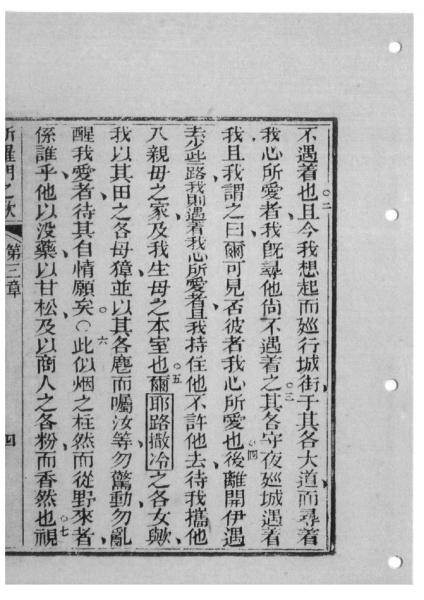 不遇着也○二且今我想起而廵行城街于其各大道而尋着
我心所愛者我旣尋他尙不遇着之○三其各守夜廵城遇着
我且我謂之曰爾可見否彼者我心所愛也○四後離開伊遇
去少些路我則遇着我心所愛者且我持住他不許他去待我攜他
入親母之家及我生母之本室也○五爾耶路撒冷之各女歟
我以其田之各母獐並以其各麀而囑汝等勿驚動勿亂
醒我愛者待其自情願矣○六此似烟之柱然而從野來者
係誰乎他以没藥以甘松及以商人之各粉而香然也○七視
所羅門之歌
第三章
四